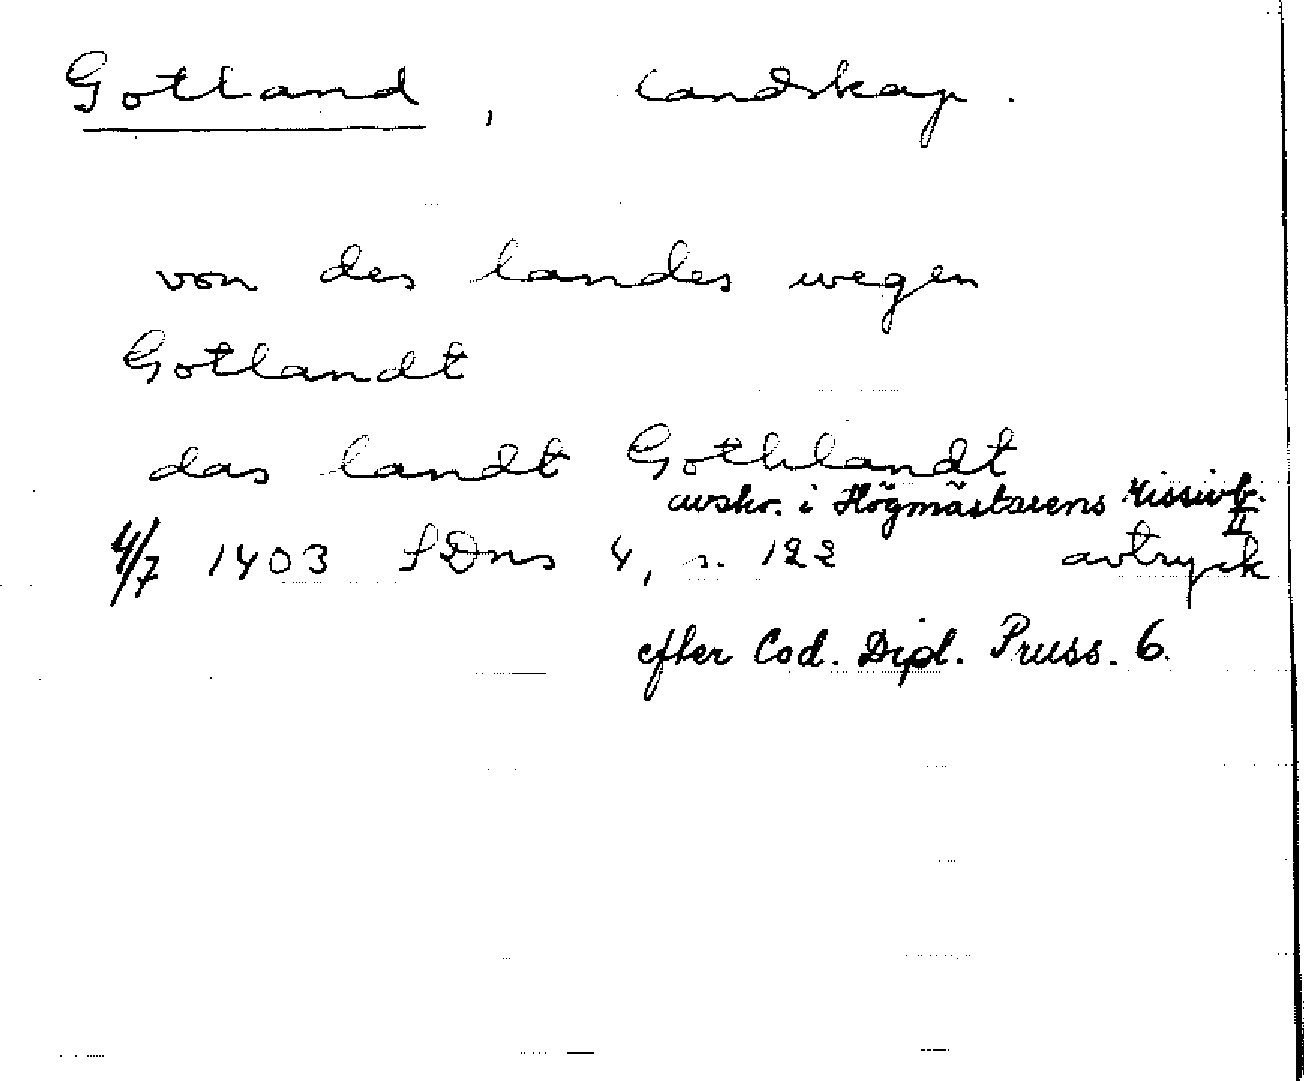 Gotland, landskap.
von des landes wegen
Gotlandt
das landt Gothlandt
avskr. i Högmästarens Missivb. II
4/7 1403 SDns 4, s. 122 avtryck
efter Cod. Dipl. Pruss. 6.